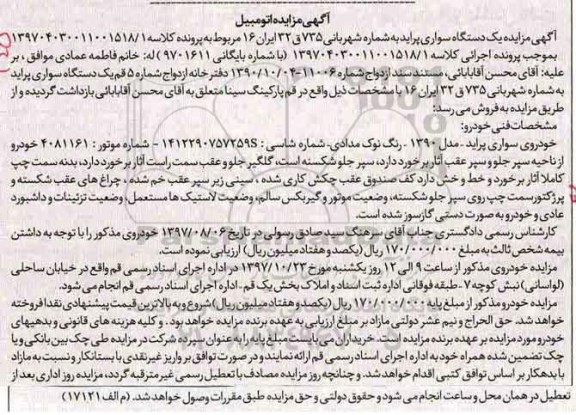 آگهی مزایده اتومبیل
آگهی مزایده یک دستگاه سواری پراید به شماره شهربانی ۷۳۵ ق ۳۲ ایران ۱۶ مربوط به پرونده کلاسه ۱۳۹۷۰۴۰۳۰۰۱۱۰۰۱۵۱۸/۱
بموجب پرونده اجرائی کلاسه ۱۳۹۷۰۴۰۳۰۰۱۱۰۰۱۵۱۸/۱ (با شماره بایگانی ۹۷۰۱۶۱۱) له: خانم فاطمه عمادی موافق، بر
علیه: آقای محسن آقابابائی، مستند سند ازدواج شماره ۱۱۰۰۶-۱۳۹۰/۱۰/۰۴ دفترخانه ازدواج شماره ۵ قم یک دستگاه سواری پراید
به شماره شهربانی ۷۳۵ ق ۳۲ ایران ۱۶ با مشخصات ذیل واقع در قم پارکینگ سینا متعلق به آقای محسن آقابابائی بازداشت گردیده و از
طریق مزایده به فروش می رسد:
مشخصات فنی خودرو:
خودروی سواری پراید - مدل ۱۳۹۰ - رنگ نوک مدادی - شماره شاسی: S۱۴۱۲۲۹۰۷۵۷۲۵۹ - شماره موتور: ۴۰۸۱۱۶۱ خودرو
از ناحیه سپر جلو و سپر عقب آثار برخورد دارد، سپر جلو شکسته است، گلگیر جلو و عقب سمت راست آثار برخورد دارد، بدنه سمت چپ
کاملا آثار برخورد و خط و خش دارد کف صندوق عقب چکش کاری شده، سینی زیر سپر عقب خم شده، چراغ های عقب شکسته و
پرژکتور سمت چپ روی سپر جلو شکسته، وضعیت موتور و گیربکس سالم، وضعیت لاستیک ها مستعمل، وضعیت تزئینات و داشبورد
عادی و خودرو به صورت دستی گازسوز شده است.
کارشناس رسمی دادگستری جناب آقای سرهنگ سید صادق رسولی در تاریخ ۱۳۹۷/۰۸/۰۶ خودروی مذکور را با توجه به داشتن
بیمه شخص ثالث به مبلغ ۱۷۰/۰۰۰/۰۰۰ ریال (یکصد و هفتاد میلیون ریال) ارزیابی نموده است.
مزایده خودروی مذکور از ساعت ۹ الی ۱۲ روز یکشنبه مورخ ۱۳۹۷/۱۰/۲۳ در اداره اجرای اسناد رسمی قم واقع در خیابان ساحلی
(لواسانی) نبش کوچه ۷ - طبقه فوقانی اداره ثبت اسناد و املاک بخش یک قم - اداره اجرای اسناد رسمی قم انجام می شود.
مزایده خودرو مذکور از مبلغ پایه ۱۷۰/۰۰۰/۰۰۰ ریال (یکصد و هفتاد میلیون ریال) شروع و به بالاترین قیمت پیشنهادی نقدا فروخته
خواهد شد. حق الحراج و نیم عشر دولتی مازاد بر مبلغ ارزیابی به عهده برنده مزایده خواهد بود. و کلیه هزینه های قانونی و بدهیهای
خودرو مورد مزایده بر عهده برنده مزایده است. خریداران می بایست مبلغ پایه را به عنوان سپرده شرکت در مزایده طی چک بین بانکی و یا
چک تضمین شده همراه خود به اداره اجرای اسناد رسمی قم ارائه نمایند و در صورت توافق بر واریز غیرنقدی با بستانکار و نسبت به مازاد
با بدهکار بر اساس توافق کتبی اقدام خواهد شد. و چنانچه روز مزایده مصادف با تعطیل رسمی غیر مترقبه گردد، مزایده روز اداری بعد از
تعطیل در همان محل و ساعت انجام می شود و حقوق دولتی و حق مزایده طبق مقررات وصول خواهد شد. (م الف ۱۷۱۲۱)